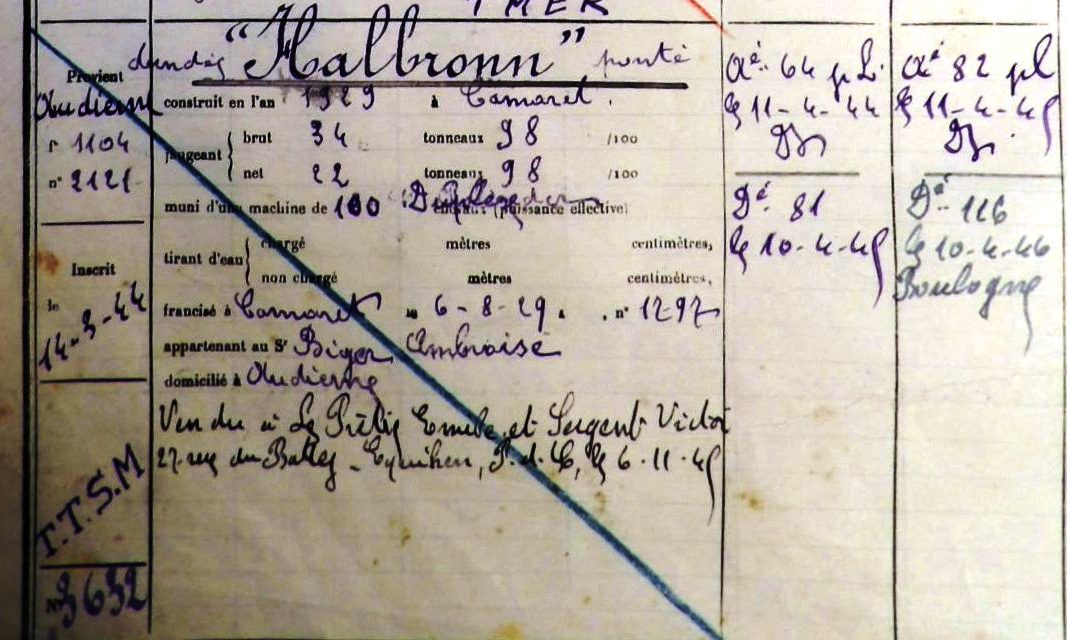 TMER
dundée "Halbronn" ponté
Provient
Audierne
f° 1104
n° 2121
construit en l'an 1929 à Camaret.
jaugeant
brut 34 tonneaux 98 /100
net 22 tonneaux 98 /100
muni d'une machine de 100 (puissance effective)
tirant d'eau
chargé mètres centimètres,
non chargé mètres centimètres,
francisé à Camaret le 6-8-29, n° 1297
appartenant au Sr Biger Ambroise
domicilié à Audierne
Vendu à Le Prêtre Emile et Sergent Victor
27 rue du Ballez - Equihen, P.d.C, le 6.11.45
Inscrit
le
14-3-44
T.T.S.M
N° 3632
Aé. 64 p L.
le 11-4-44
Dé. 81
le 10-4-45
Aé 82 pl
le 11-4-45
Dé. 116
le 10-4-46
Boulogne